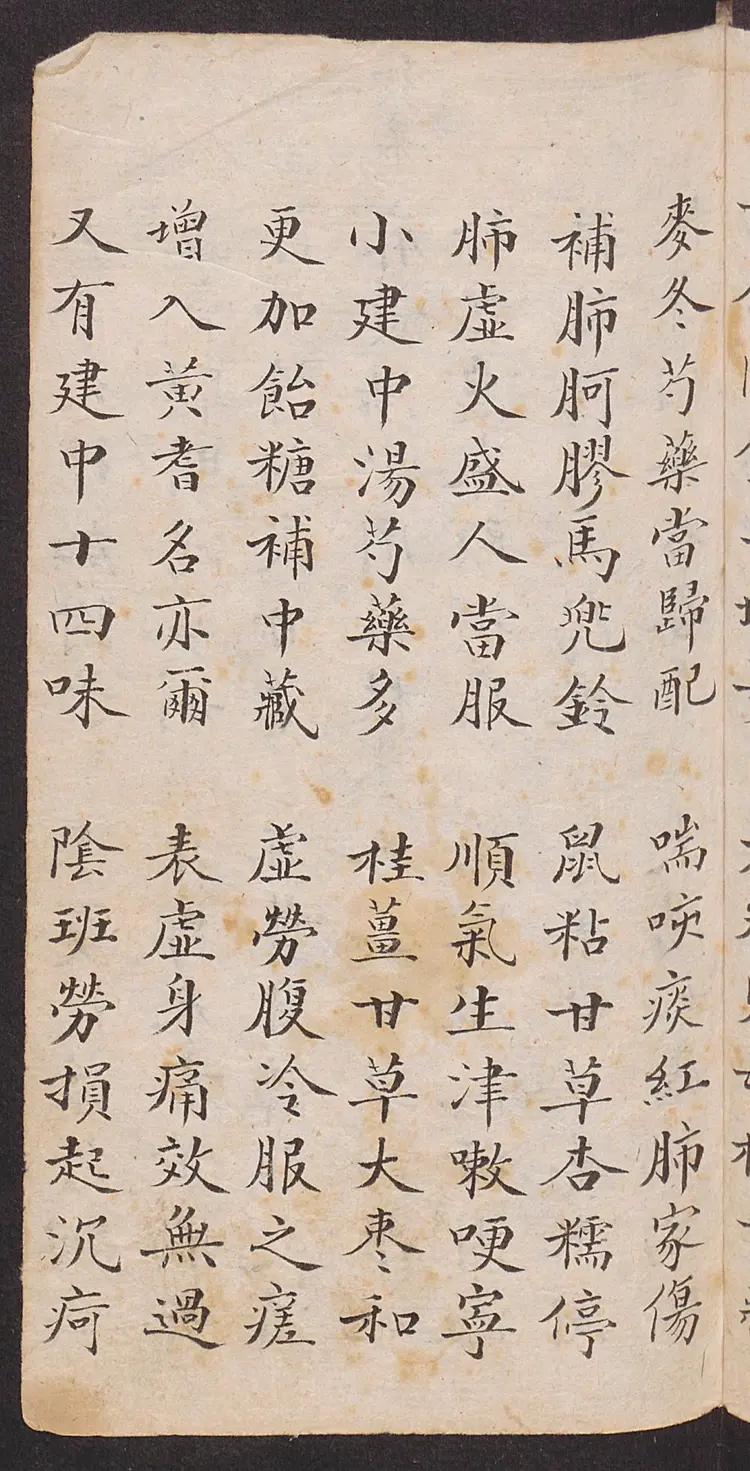 麥冬芍藥當歸配 喘咳痰紅肺家傷
補肺阿膠馬兜鈴 鼠粘甘草杏糯停
肺虛火盛人當服 順氣生津嗽哽寧
小建中湯芍藥多 桂薑甘草大棗和
更加飴糖補中藏 虛勞腹冷服之瘥
增入黃耆名亦爾 表虛身痛效無過
又有建中十四味 陰班勞損起沉疴